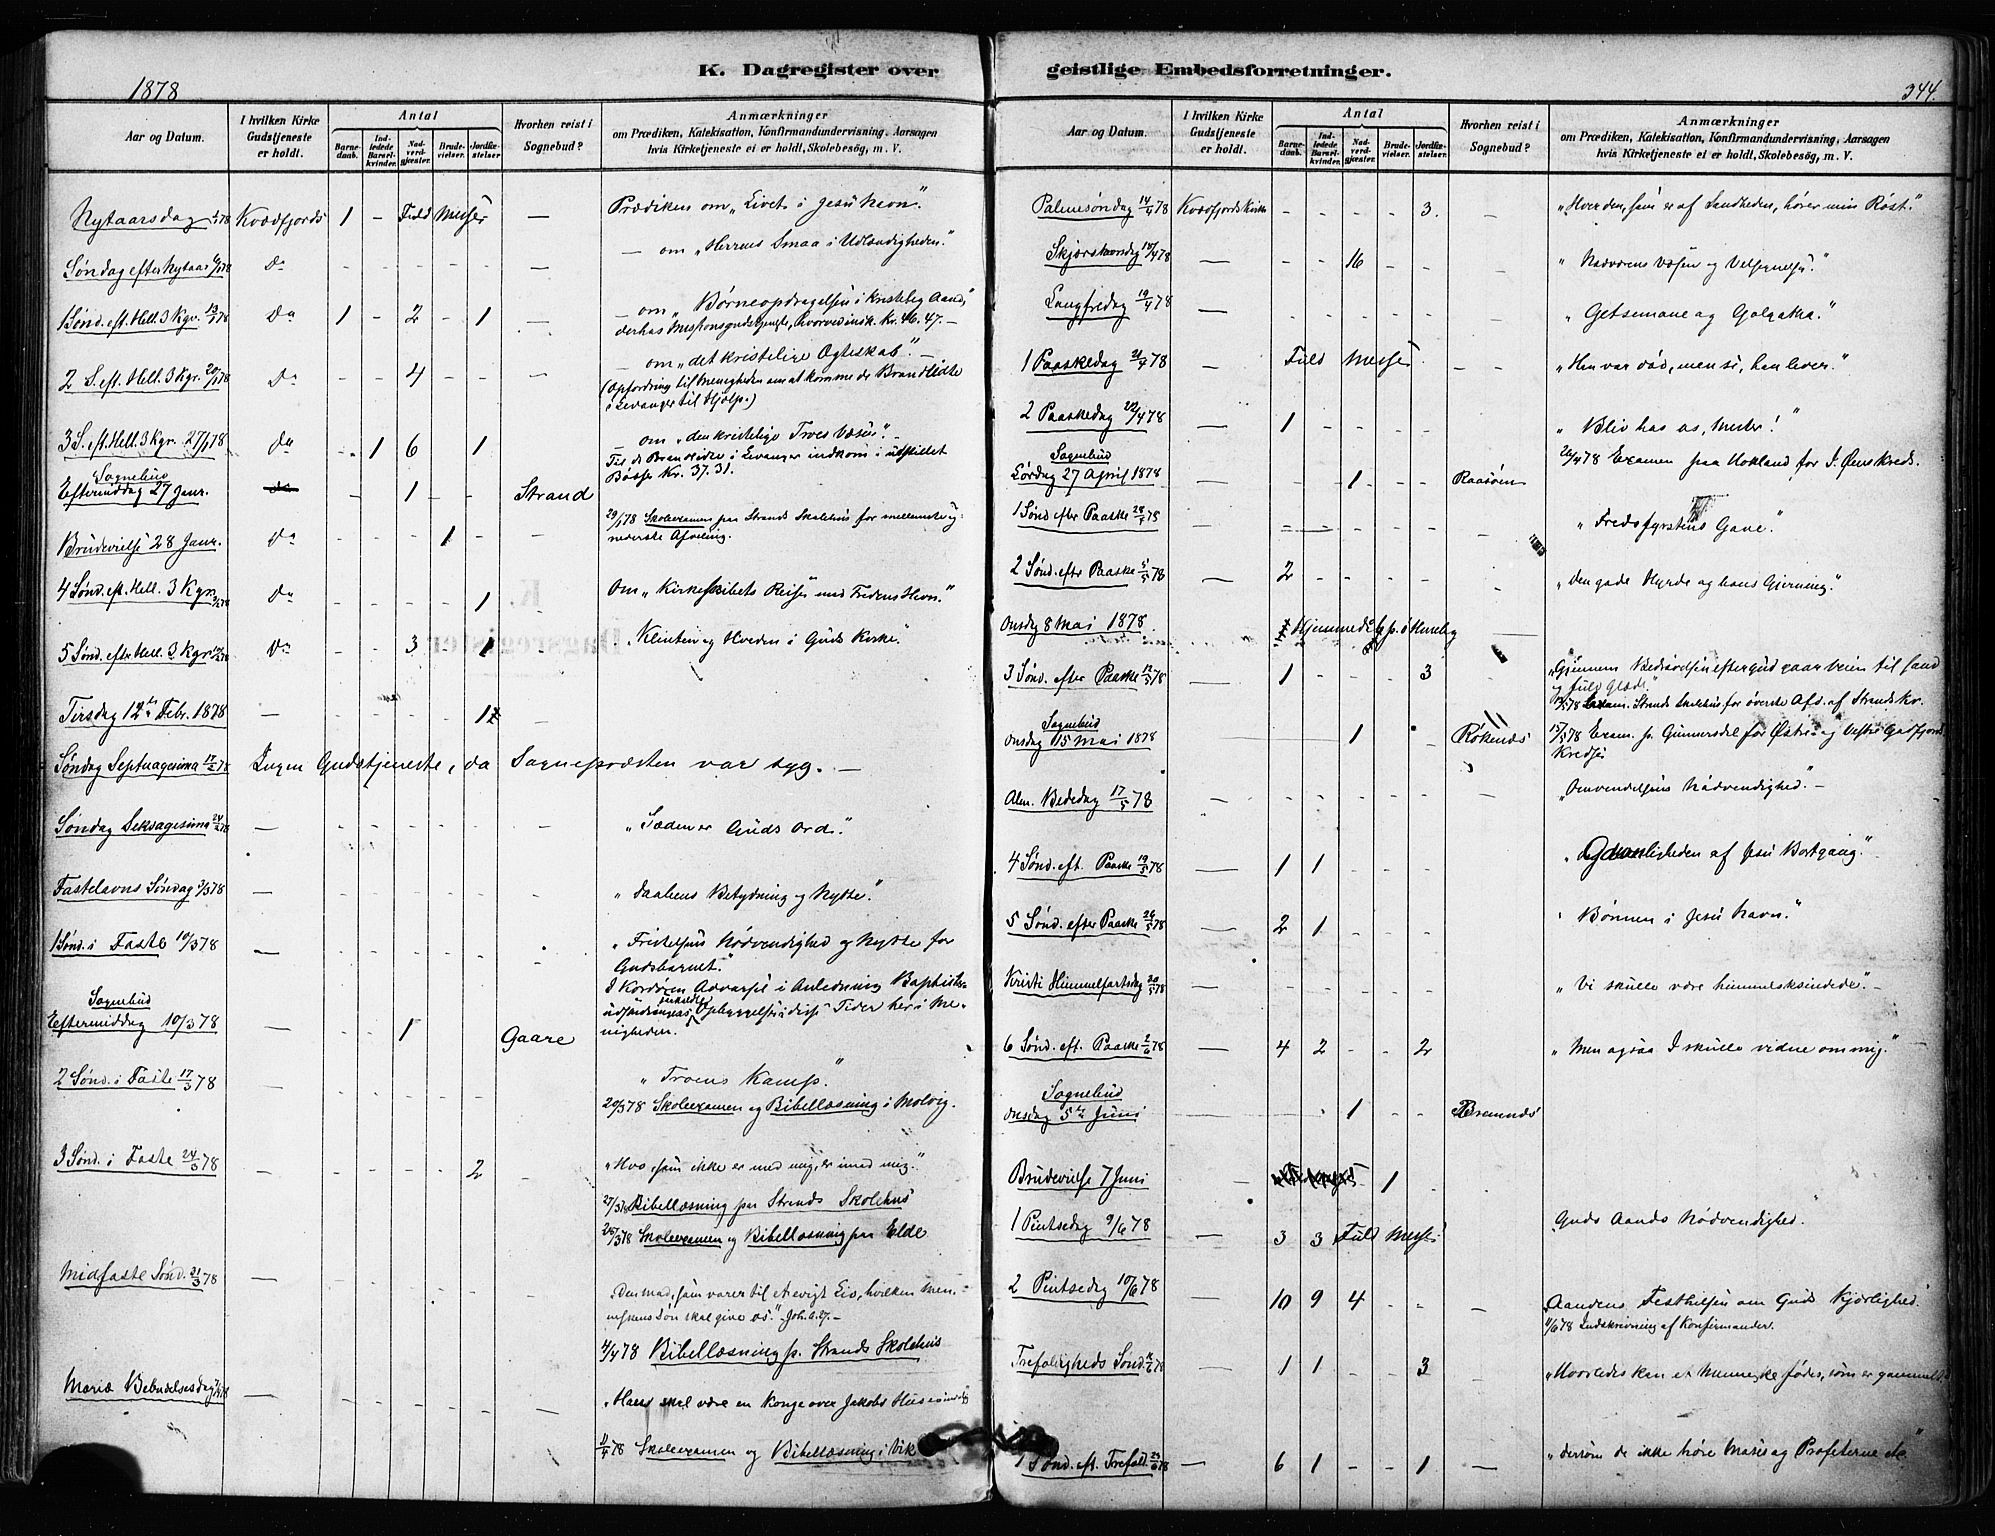 1878
K. Dagregister over
Aar og Datum.
I hvilken Kirke Gudstjeneste er holdt.
Antal
Barnedaab.
Indledede Barselkvinder.
Nadverdgjæster.
Brudevielser.
Jordfæstelser
Hvorhen reist i Sognebud?
Anmærkninger
om Prædiken, Katekisation, Konfirmandundervisning, Aarsagen
hvis Kirketjeneste ei er holdt, Skolebesög, m. V.
Nytaarsdag 1/1 78 Kvædfjords 1 - Fuld Messe - Prædiken om "Livet i Jesu Navn".
Søndag efter Nytaar 6/1 78 Do - - - - - - - om "Herrens Smaa i Udlændigheden."
1 Sønd. eft. Hell. 3 Kgr. 13/1 78 Do 1 - 2 - 1 - - om "Børneopdragelsen i kristelig Aand,"
derhos Missionsgudstjeneste, hvorved indk. Kr. 46. 47. -
2 S. eft. Hell. 3 Kgr. 20/1 78 Do - - 4 - - - - om "det kristelige Ægteskab". -
(Opfordring til Menigheden om at komme de Brandlidte
i Levanger til Hjælp.)
3 S. eft. Hell. 3 Kgr. 27/1 78 Do - 1 6 - 1 - om "den kristelige Troes Væsen". -
Til de Brandlidte i Levanger indkom i udstillet
Bøsse Kr. 37. 31.
Sognebud
Eftermiddag 27 Janr. - - 1 - - Strand
29/1 78 Skoleexamen paa Strands Skolehus for mellemste og
nederste Afdeling.
Brudevielse 28 Janr. Do - - - 1
4 Sønd. eft. Hell. 3 Kgr. 3/2 78 Do - - - - 1 - Om "Kirkeskibets Reise med Fredens Havn."
5 Sønd. efter Hell. 3 Kgr. 10/2 78 Do - - 3 - 1 - "Klinten og Hveden i Guds Kirke".
Tirsdag 12te Febr. 1878 - - - - - 1 -
Søndag Septuagesima 17/2 78 Ingen Gudstjeneste, da Sognepræsten var syg. -
Søndag Seksagesima 24/2 78 - - - - - - - "Sæden er Guds Ord".
Fastelavns Søndag 3/3 78 - - - - - - - "Daabens Betydning og Nytte".
1 Sønd. i Faste 10/3 78 - - - - - - - "Fristelsens Nødvendighed og Nytte for
Gudsbarnet."
I Kordøren Advarsel i Anledning Baptist-
Opbyggelser i disse Tider her i Me-
nigheden.
Sognebud
Eftermiddag 10/3 78 - - - 1 - - Gaare
2 Sønd. i Faste 17/3 78 - - - - - - "Troens Kamp."
20/3 78 Skoleexamen og Bibellæsning i Molvig.
3 Sønd. i Faste 24/3 78 - - - - - 2 - "Hvo, som ikke er med mig, er imod mig."
27/3 78 Bibellæsning paa Strands Skolehus
28/3 78 Skoleexamen og Bibellæsning paa Elde
Midfaste Sønd. 31/3 78 - - - - - - "Den Mad, som varer til et evigt Liv, hvilken Men-
neskens Søn skal give os". Joh.
4/4 78 Bibellæsning p. Strands Skolehus
Mariæ Bebudelsesdag 7/4 78 - - - - - - - "Han skal være en Konge over Jakobs Hus
11/4 78 Skoleexamen og Bibellæsning i Vik
geistlige Embedsforretninger.
344.
Aar og Datum.
I hvilken Kirke Gudstjeneste er holdt.
Antal
Barnedaab.
Indledede Barselkvinder.
Nadverdgjæster.
Brudevielser.
Jordfæstelser.
Hvorhen reist i Sognebud?
Anmærkninger
om Prædiken, Katekisation, Konfirmandundervisning, Aarsagen
hvis Kirketjeneste ei er holdt, Skolebesög, m. V.
Palmesøndag 14/4 78 Kvædfjords Kirke - - - - 3. - "Hver den, som er af Sandheden, hører min Røst."
Skjærthorsdag 18/4 78 - - - 16 - - - "Nadverens Væsen og Velsignelse."
Langfredag 19/4 78 - - - - - - "Getsemane og Golgatha."
1 Paaskedag 21/4 78 Fuld Messe. - - "Han var død, men se, han lever."
2 Paaskedag 22/4 78 - 1 - - - - - "Bliv hos os, Mester!"
26/4 78 Examen paa Hokland for Øens Kreds.
Sognebud
Lørdag 27 April 1878 - - - 1 - - Raasøen
1 Sønd. efter Paaske 28/4 78 - - - - - - "Fredsfyrstens Gave."
2 Sønd. efter Paaske 5/5 78 - 2 - - - - - "Den gode Hyrde og hans Gjerning".
Onsdag 8 Mai 1878. 1 Hjemmedøbt p. Huseby
3 Sønd. efter Paaske 12/5 78 - 1 - - - 3 - "Gjennem Bedrøvelsen efter Gud gaar Veien til sand
og fuld Glæde"
Exam. Strands Skolehus for øverste Afd. af Strands Kr.
Sognebud
Onsdag 15 Mai 1878 - - - 1 - Rokenæs 15/5 78 Exam. p. Gunnersdal for Østre og Vestre Gulfjords
Kredse
Alm. Bededag 17/5 78 - - - - - - - "Omvendelsens Nødvendighed". -
4 Sønd. eft. Paaske 19/5 78 - 1 1 - - - - af Jesu Bortgang".
5 Sønd. efter Paaske 26/5 78 - 2 1 - - - - "Bønnen i Jesu Navn."
Kristi Himmelfartsdag 30/5 78 - - - - - - - "Vi skulle være himmelsksindede". -
6 Sønd. eft. Paaske 2/6 78 - 4 2 - - 2 - "Men ogsaa I skulle vidne om mig."
Sognebud
Onsdag 5te Juni - - - 1 - - Bremnæs
Brudevielse 7 Juni - 1 -
1 Pintsedag 9/6 78 - 3 3 Fuld Messe Guds Aands Nødvendighed.
2 Pintsedag 10/6 78 - 10 9 4 - - - Aandens Festhilsen om Guds Kjærlighed.
11/6 78 Indskrivning af Konfirmander.
Trefoldigheds Sønd. 16/6 78 - 1 1 - - 3 - "Hvorledes kan et Menneske fødes, som er gammelt
1 Sønd. eft. Trefold. 23/6 78 - 6 1 - - 1 - "Dersom de ikke høre Moses og Profeterne etc."